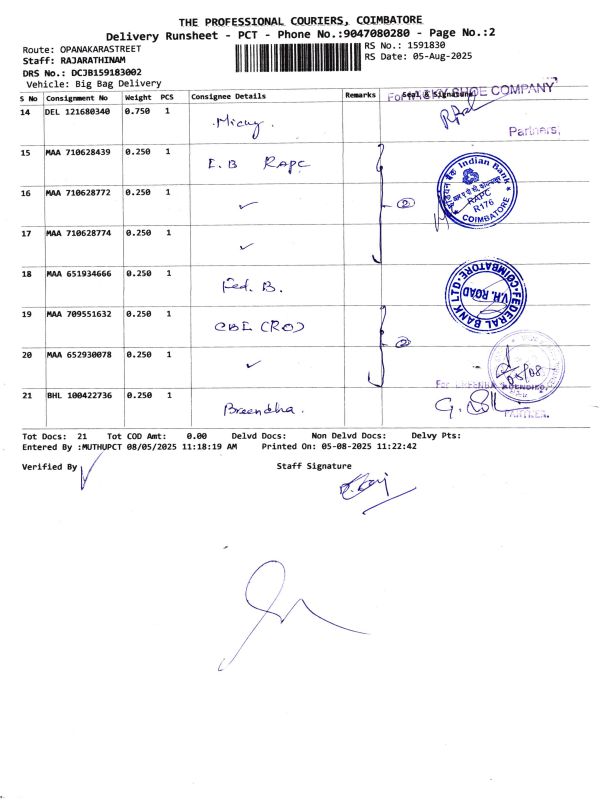 THE PROFESSIONAL COURIERS, COIMBATORE
Delivery Runsheet - PCT - Phone No.:9047080280 - Page No.:2
Route: OPANAKARASTREET
RS No.: 1591830
Staff: RAJARATHINAM
RS Date: 05-Aug-2025
DRS No.: DCJB159183002
Vehicle: Big Bag Delivery
S No Consignment No Weight PCS Consignee Details Remarks Seal & Signature
For SHOE COMPANY
14 DEL 121680340 0.750 1
Partners,
15 MAA 710628439 0.250 1 I.B RAPC
16 MAA 710628772 0.250 1 ✓ 2
Indian Bank
RAPC
R176
COIMBATORE
17 MAA 710628774 0.250 1 ✓
18 MAA 651934666 0.250 1 Fed. B.
FEDERAL BANK LTD.
V.H. ROAD
COIMBATORE
19 MAA 709551632 0.250 1 CBE (RO)
20 MAA 652930078 0.250 1 ✓ 2
05/08
21 BHL 100422736 0.250 1 Breendha.
For AGENCIES,
PARTNER.
Tot Docs: 21 Tot COD Amt: 0.00 Delvd Docs: Non Delvd Docs: Delvy Pts:
Entered By :MUTHUPCT 08/05/2025 11:18:19 AM Printed On: 05-08-2025 11:22:42
Verified By Staff Signature